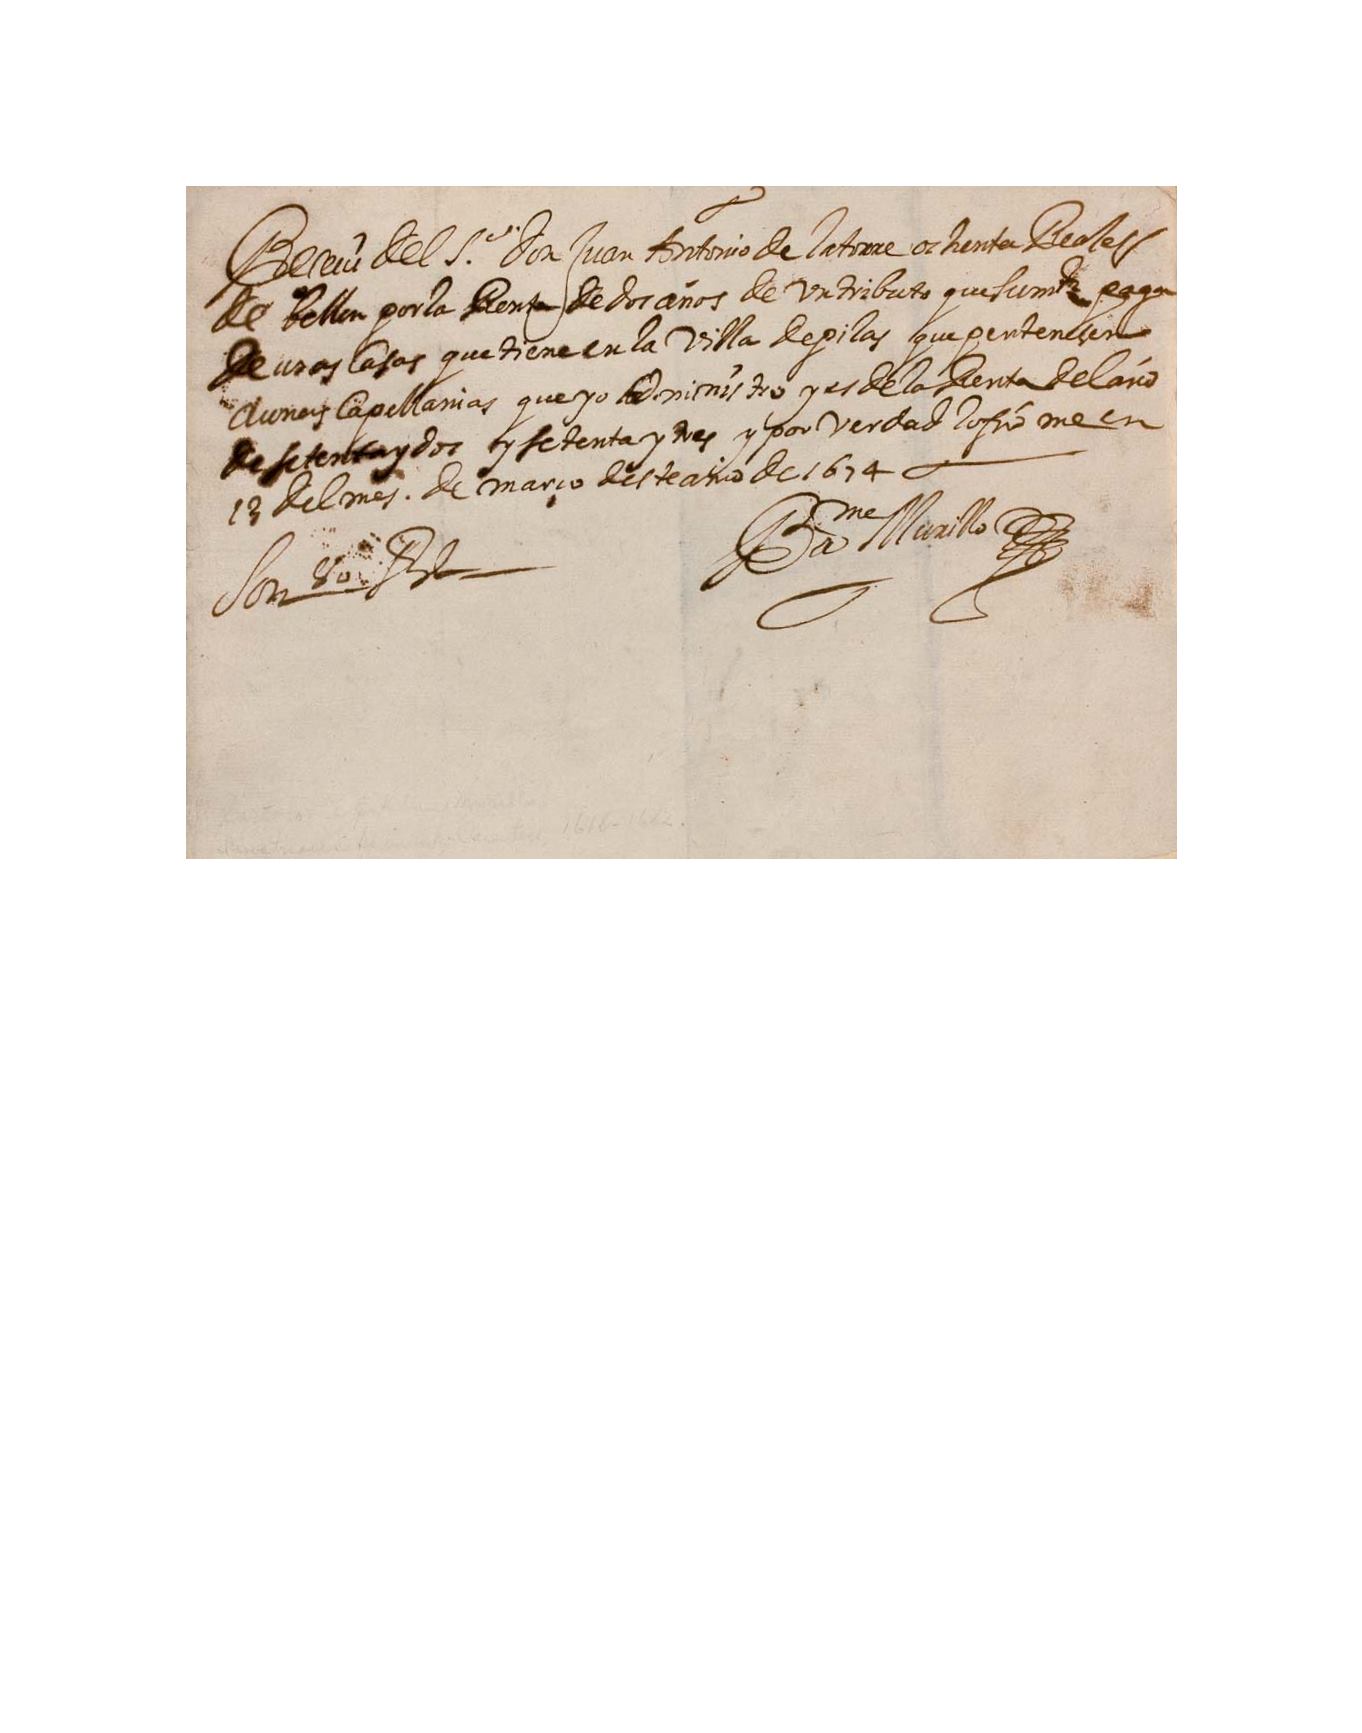 Receui del S.or don Juan Antonio de la torre ochenta Reales
de bellon por la Renta de dos años de un tributo que sumd paga
de unas Casas que tiene en la Villa de pilas que pertenesen
a unas Capellanias que yo administro y es de la Renta del año
de setenta y dos y setenta y tres y por verdad lo firme en
13 del mes. de março deste año de 1674
Bar.me Murillo
Son 80 Rs
1616-1682.